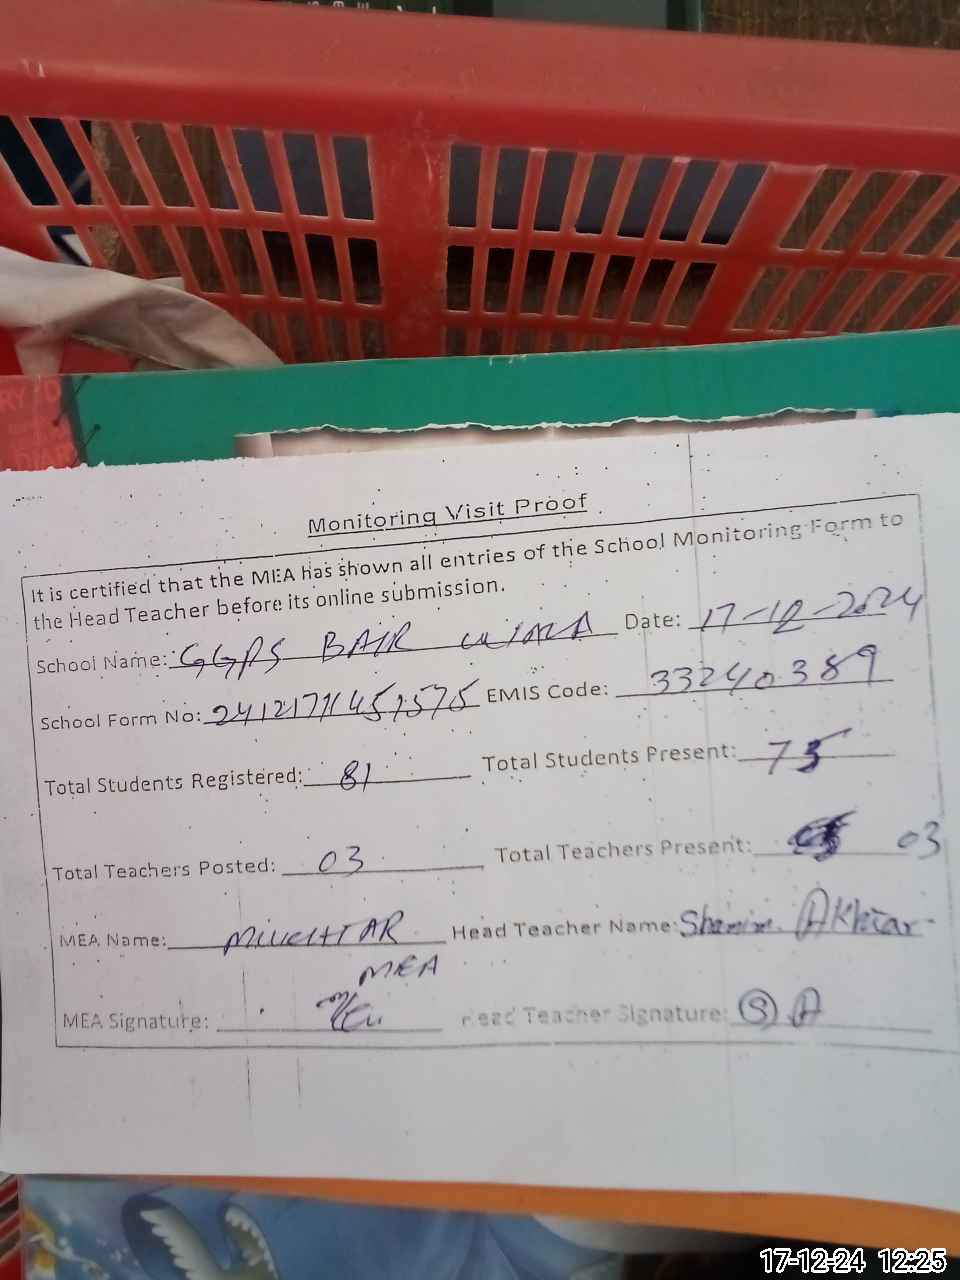 Monitoring Visit Proof
It is certified that the MEA has shown all entries of the School Monitoring Form to
the Head Teacher before its online submission.
School Name: GGPS BAIR WALA Date: 17-12-2024
School Form No: EMIS Code: 33240389
Total Students Registered: 81 Total Students Present: 75
Total Teachers Posted: 03 Total Teachers Present: 03
MEA Name: MUCHTAR Head Teacher Name: Shamim Akhtar
MEA
MEA Signature: Head Teacher Signature: S A
17-12-24 12:25